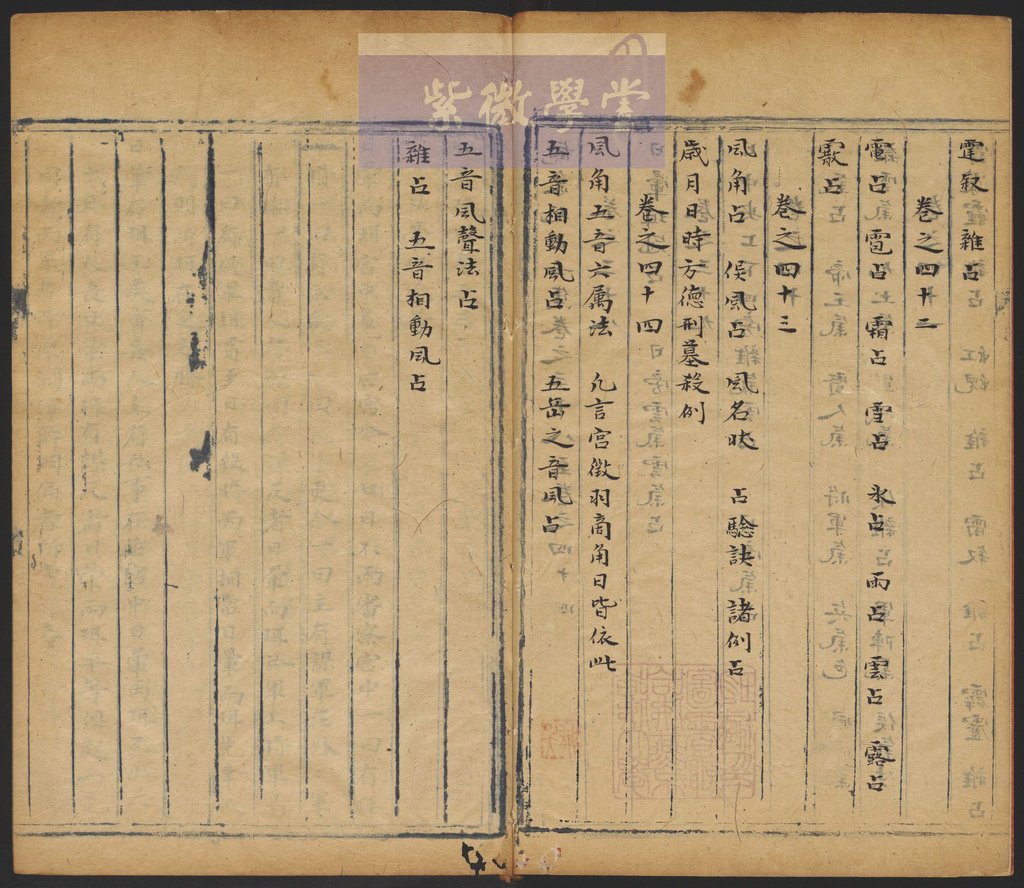 紫微學堂
霆叙雜占
卷之四十二
電占 雹占 霜占 雪占 氷占 雨占 雲占 露占
霰占
卷之四十三
風角占 候風占 風名状 占驗訣諸例占
歲月日時方德刑墓殺例
卷之四十四
風角五音六属法 凡言宫徵羽商角日皆依此
五音相動風占 五岳之音風占
五音风聲法占
雜占 五音相動風占